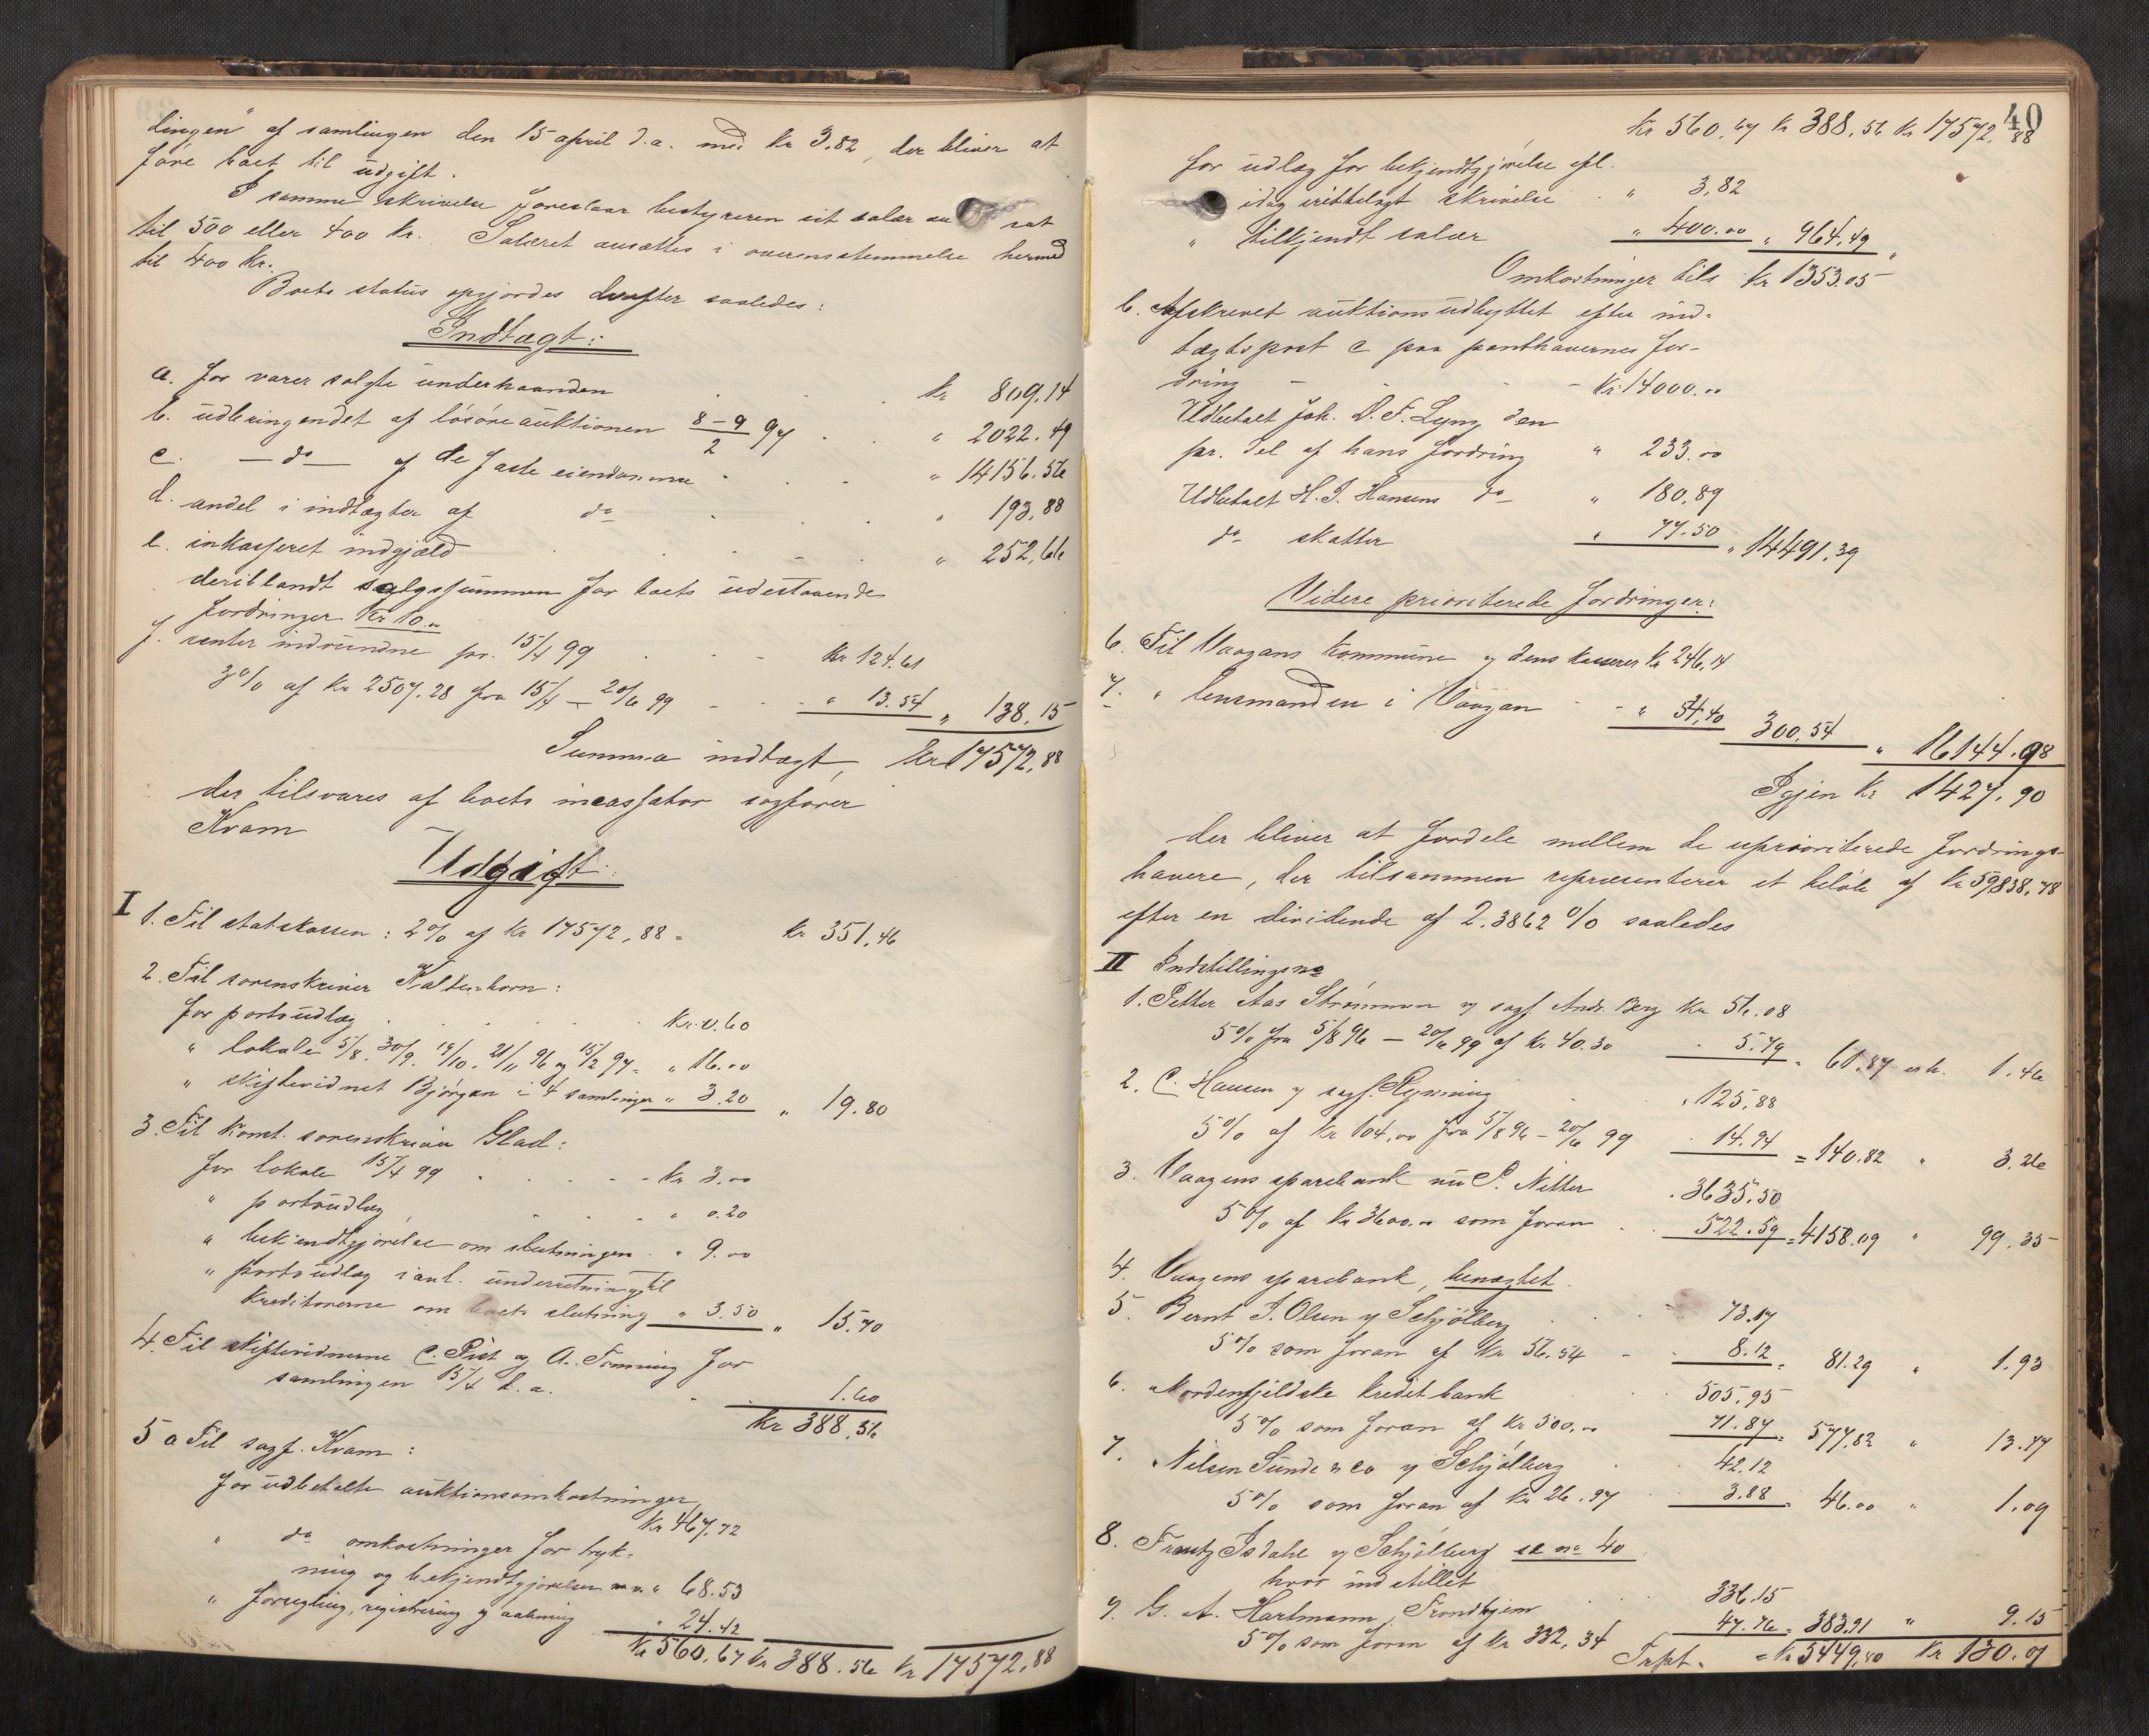 dingen" af samlingen den 15 april d.a. med kr 3.82, der bliver at
føre boet til udgift.
I samme skrivelse foreslaar bestyreren sit salær sat
til 500 eller 400 kr. Salæret ansættes i overensstemmelse hermed
til 400 kr.
Boets status opgjordes derefter saaledes:
Indtægt:
a. for varer solgte underhaanden kr 809.14
b. udbringendet af løsøreauktionen 8-9/2 97 " 2022.49
c. — do — af de faste eiendomme " 14156.56
d. andel i indtægter af do " 193.88
e. inkasseret indgjæld " 252.66
deriblandt salgssummen for boets udestaaende
fordringer kr 10.00
f. renter indvundne pr. 15/4 99 kr 124.61
3% af kr 2507.28 fra 15/4 – 20/6 99 " 13.54 " 138.15
Summa indtægt, kr 17572.88
der tilsvares af boets incassator sagfører
Kvam
Udgift:
I
1. Til statskassen: 2% af kr 17572,88 = kr 351.46
2. Til sorenskriver Kaltenborn:
for portoudlæg kr. 0.60
" lokale 5/8. 30/9. 19/10. 21/11 96 og 15/2 97 = " 16.00
" skiftevidnet Bjørgan i 4 samlinger " 3.20 " 19.80
3. Til konst. sorenskriver Glad:
for lokale 15/4 99 kr 3.00
" portoudlæg " 0.20
" bekjendtgjørelse om slutningen " 9.00
" portoudlæg i anl. underretning til
kreditorerne om boets slutning " 3.50 " 15.70
4. Til skiftevidnerne C. Rist og A. Fenning for
samlingen 15/4 d.a. 1.60
kr 388.56
5 a Til sagf. Kvam:
for udbetalte auktionsomkostninger
kr 467.72
" do omkostninger for tryk-
ning og bekjendtgjørelser m.v. " 68.53
" forsegling, registrering og aabning " 24.42
kr 560.67 kr 388.56 kr 17572.88
40
kr 560.67 kr 388.56 kr 17572.88
for udlæg for bekjendtgjørelse efl.
idag irettelagt skrivelse " 3,82
" tilkjendt salær " 400.00 " 964,49 "
Omkostninger tils kr 1353.05
b. Afskrevet auktionsudbyttet efter ind-
tægtspost c paa panthavernes for-
dring kr. 14000.00
Udbetalt Joh. D. F. Lyng den
pr. del af hans fordring " 233.00
Udbetalt H. J. Hansens do " 180.89
do skatter " 77.50 " 14491.39
Videre prioriterede fordringer:
6. Til Vaagans kommune v dens kasserer kr 246.14
7. " lensmanden i Vaagan " 54,40 300.54 " 16144.98
Igjen kr 1427.90
der bliver at fordele mellem de uprioriterede fordrings-
havere, der tilsammen repræsenterer et beløb af kr 59838,78
efter en dividende af 2.3862 % saaledes
II Indstillingsno
1. Petter Aas Strømmen v sagf. Andr. Berg kr 56.08
5% fra 5/8 96 – 20/6 99 af kr 40.30 5.79 = 61.87 erh. 1.46
2. C. Hansen v sagf. Rynning " 125.88
5% af kr 104.00 fra 5/8 96 – 20/6 99 14.94 = 140.82 " 3.26
3. Vaagens sparebank nu P. Nitter . 3635.50
5% af kr 3600.00 som foran 522.59 = 4158.09 " 99.35
4. Vaagens sparebank, benægtet.
5. Bernt J. Olsen v Schjølberg 73.17
5% som foran af kr 56.54 8.12 = 81.29 " 1.93
6. Nordenfjeldske kreditbank 505.95
5% som foran af kr 500,00 71.87 = 577.82 " 13.77
7. Nilsen Sunde & co v Schjølberg 42.12
5% som foran af kr 26.97 3.88 = 46.00 " 1.09
8. Frantz Isdahl v Schjølberg se no 40
hvor indstillet
9. G. A. Hartmann, Trondhjem 336.15
5% som foran af kr 332,34 47.76 = 383.91 " 9.15
Trspt. = kr 5449,80 kr 130.01